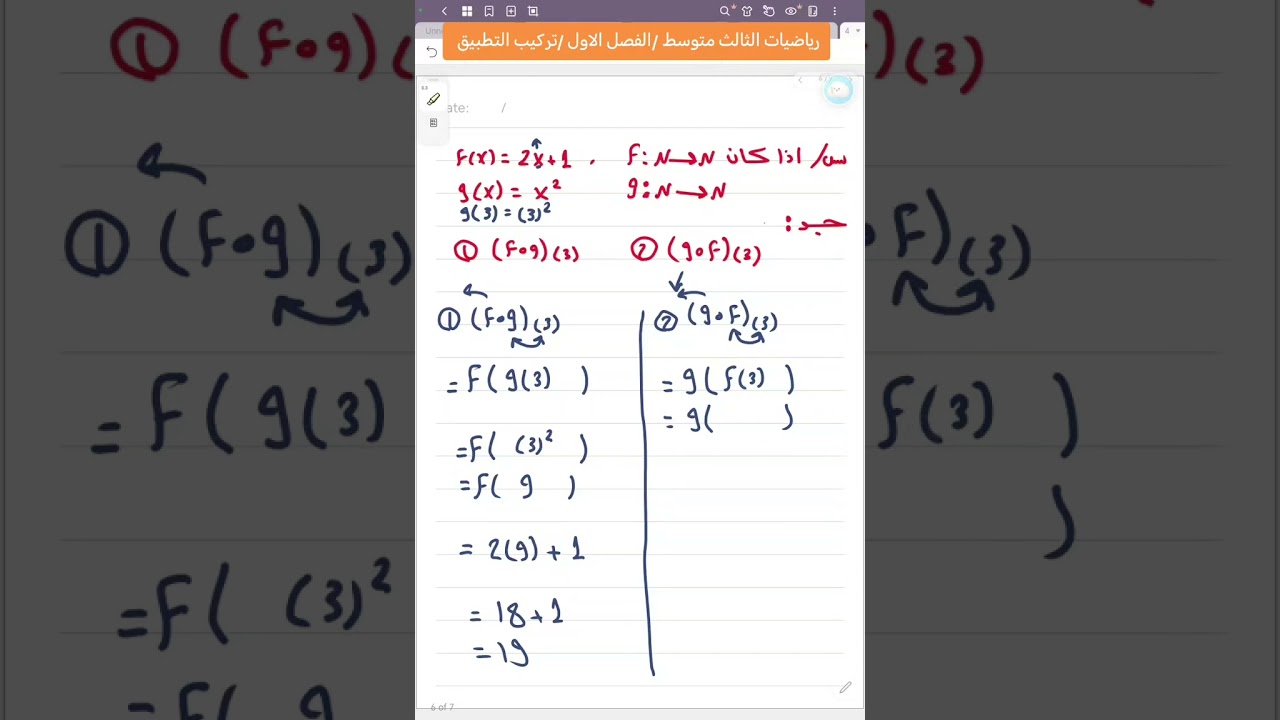 رياضيات الثالث متوسط /الفصل الاول /تركيب التطبيق
ate: /
س/ اذا كان f: N→N , f(x) = 2x+1
g: N→N g(x) = x²
g(3) = (3)²
جد :
① (f∘g)(3) ② (g∘f)(3)
① (f∘g)(3)
= f( g(3) )
= f( (3)² )
= f( 9 )
= 2(9) + 1
= 18 + 1
= 19
② (g∘f)(3)
= g( f(3) )
= g( )
6 of 7